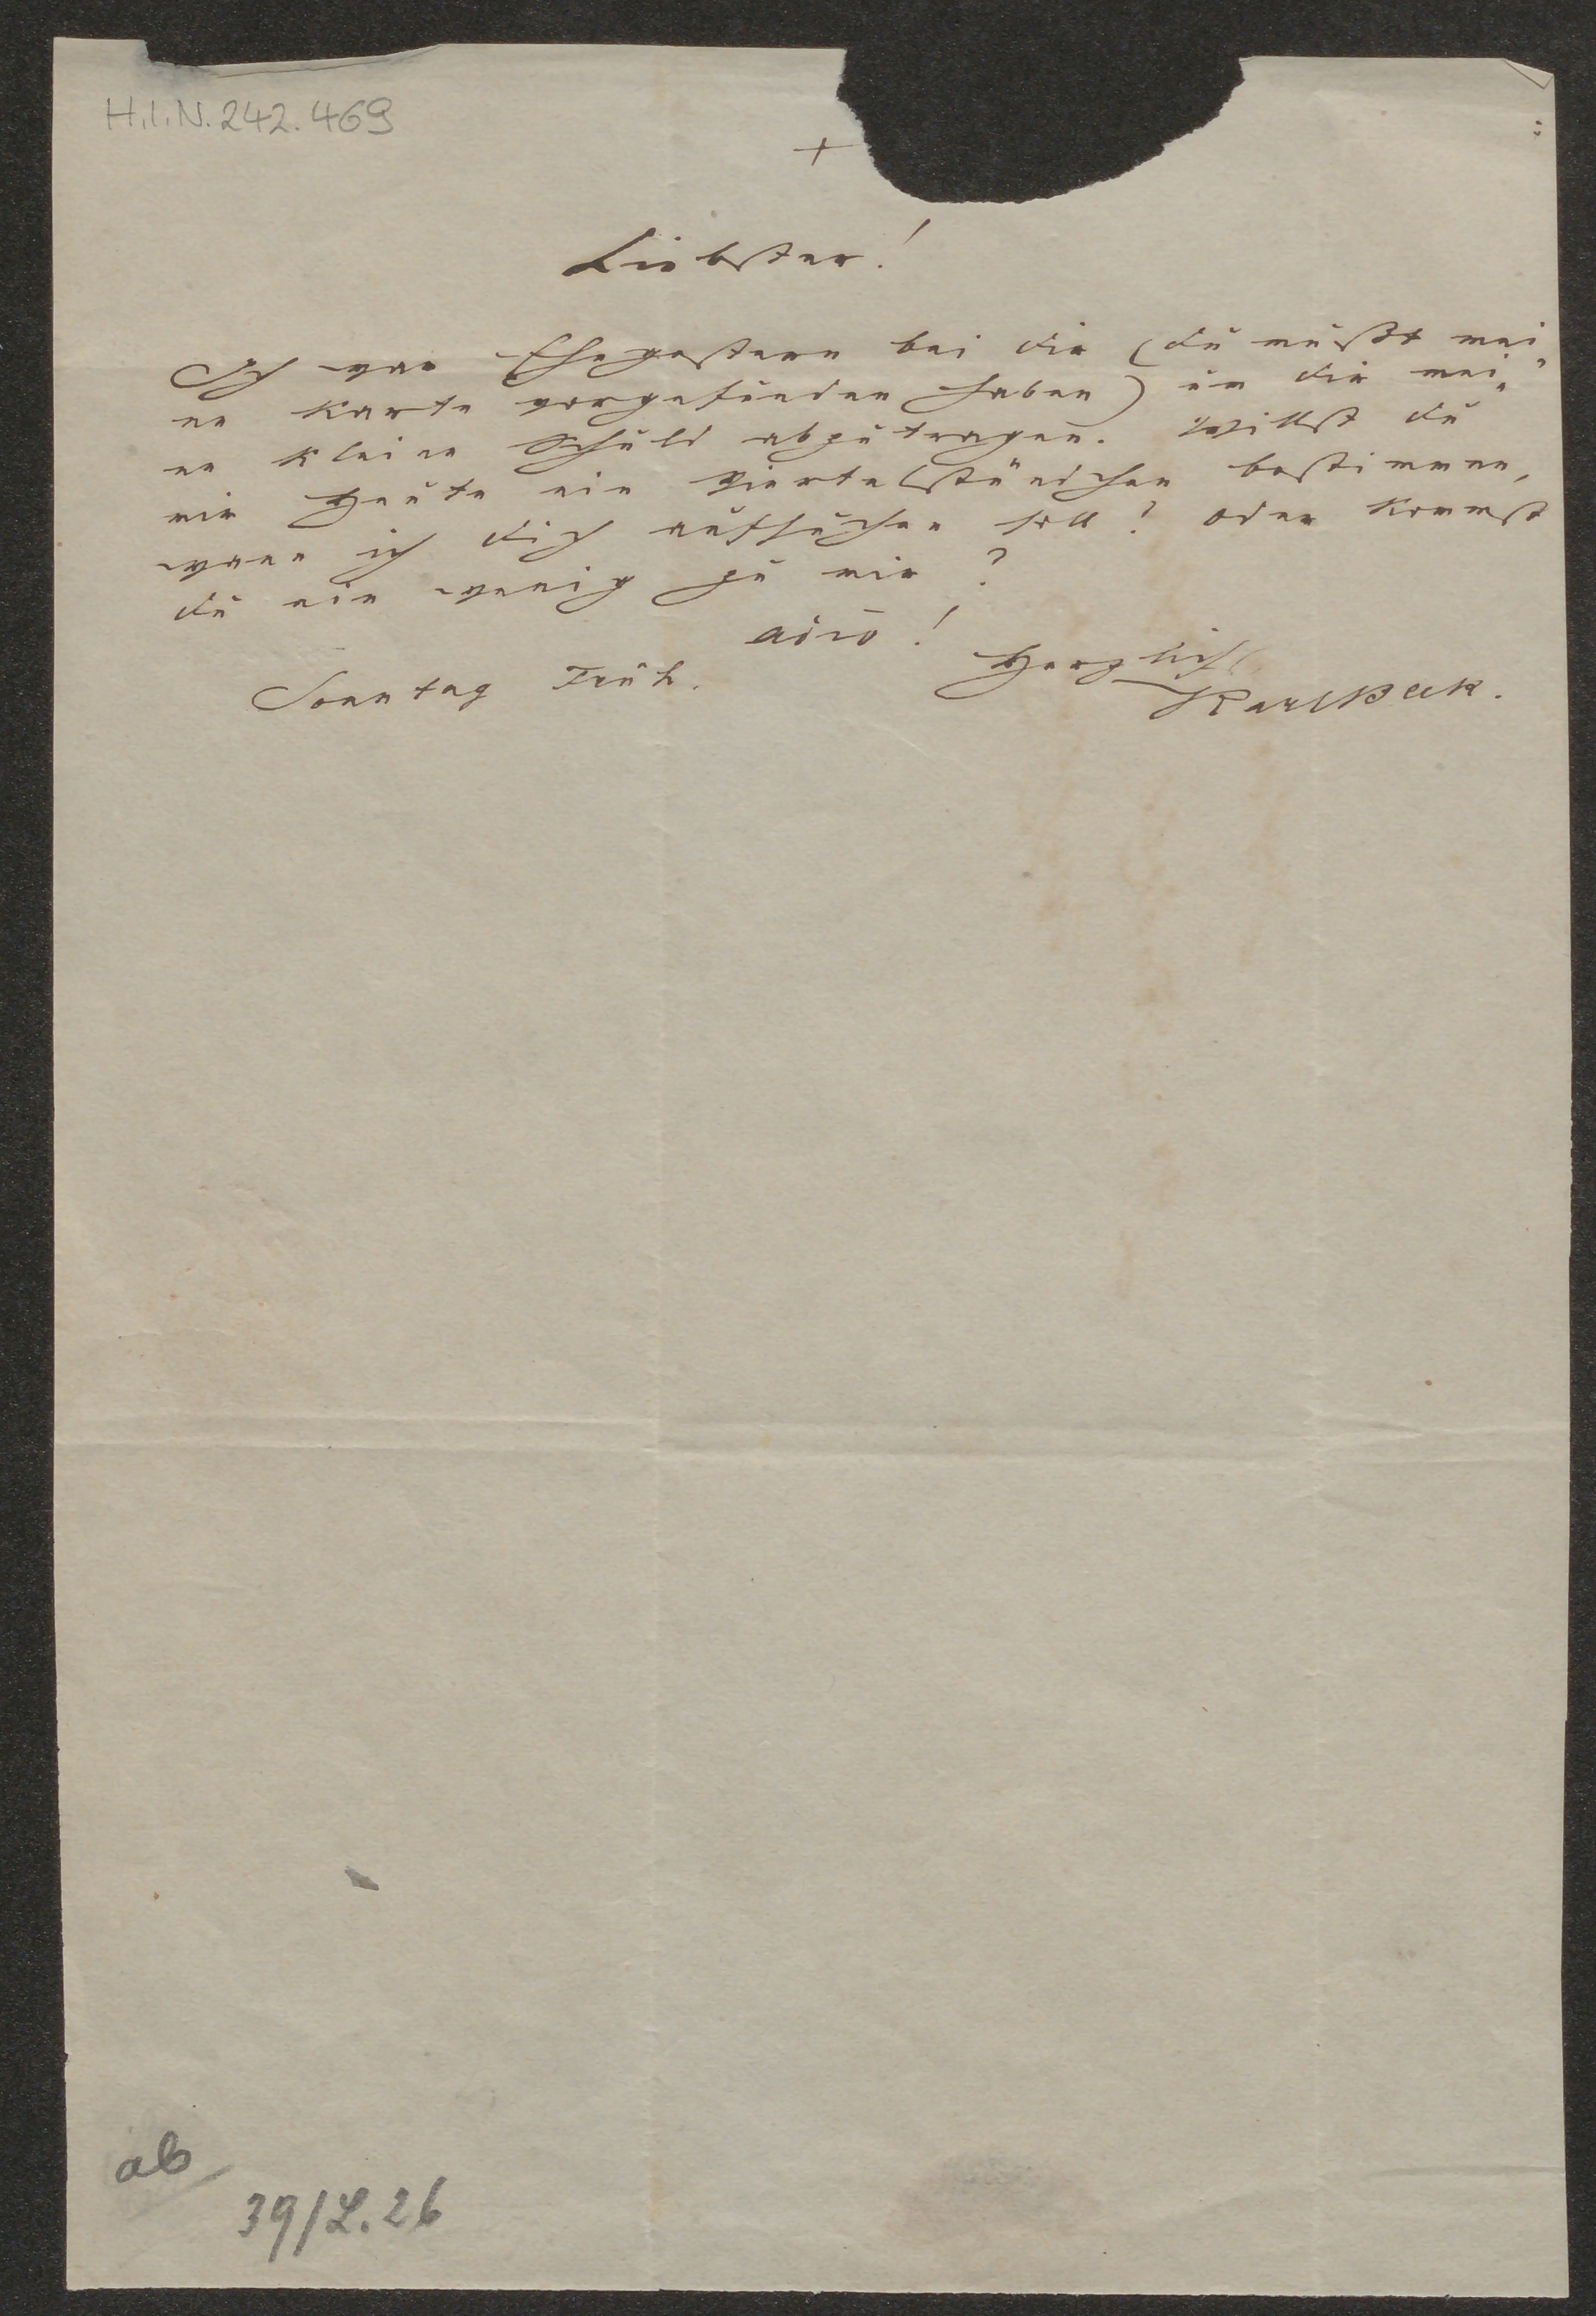 H.I.N. 242.469
+
Liebster!
Ich war Ehegestern bei dir (du mußt mei„
ne Karte vorgefunden haben) um dir mei„
ne kleine Schuld abzutragen. Willst du
mir Heute ein Viertelstündchen bestimmen,
wann ich dich aufsuchen soll? oder kommst
du ein wenig zu mir?
adio!
Herzlichst
Sonntag Früh.
Karl Beck.
ab
39/L.26